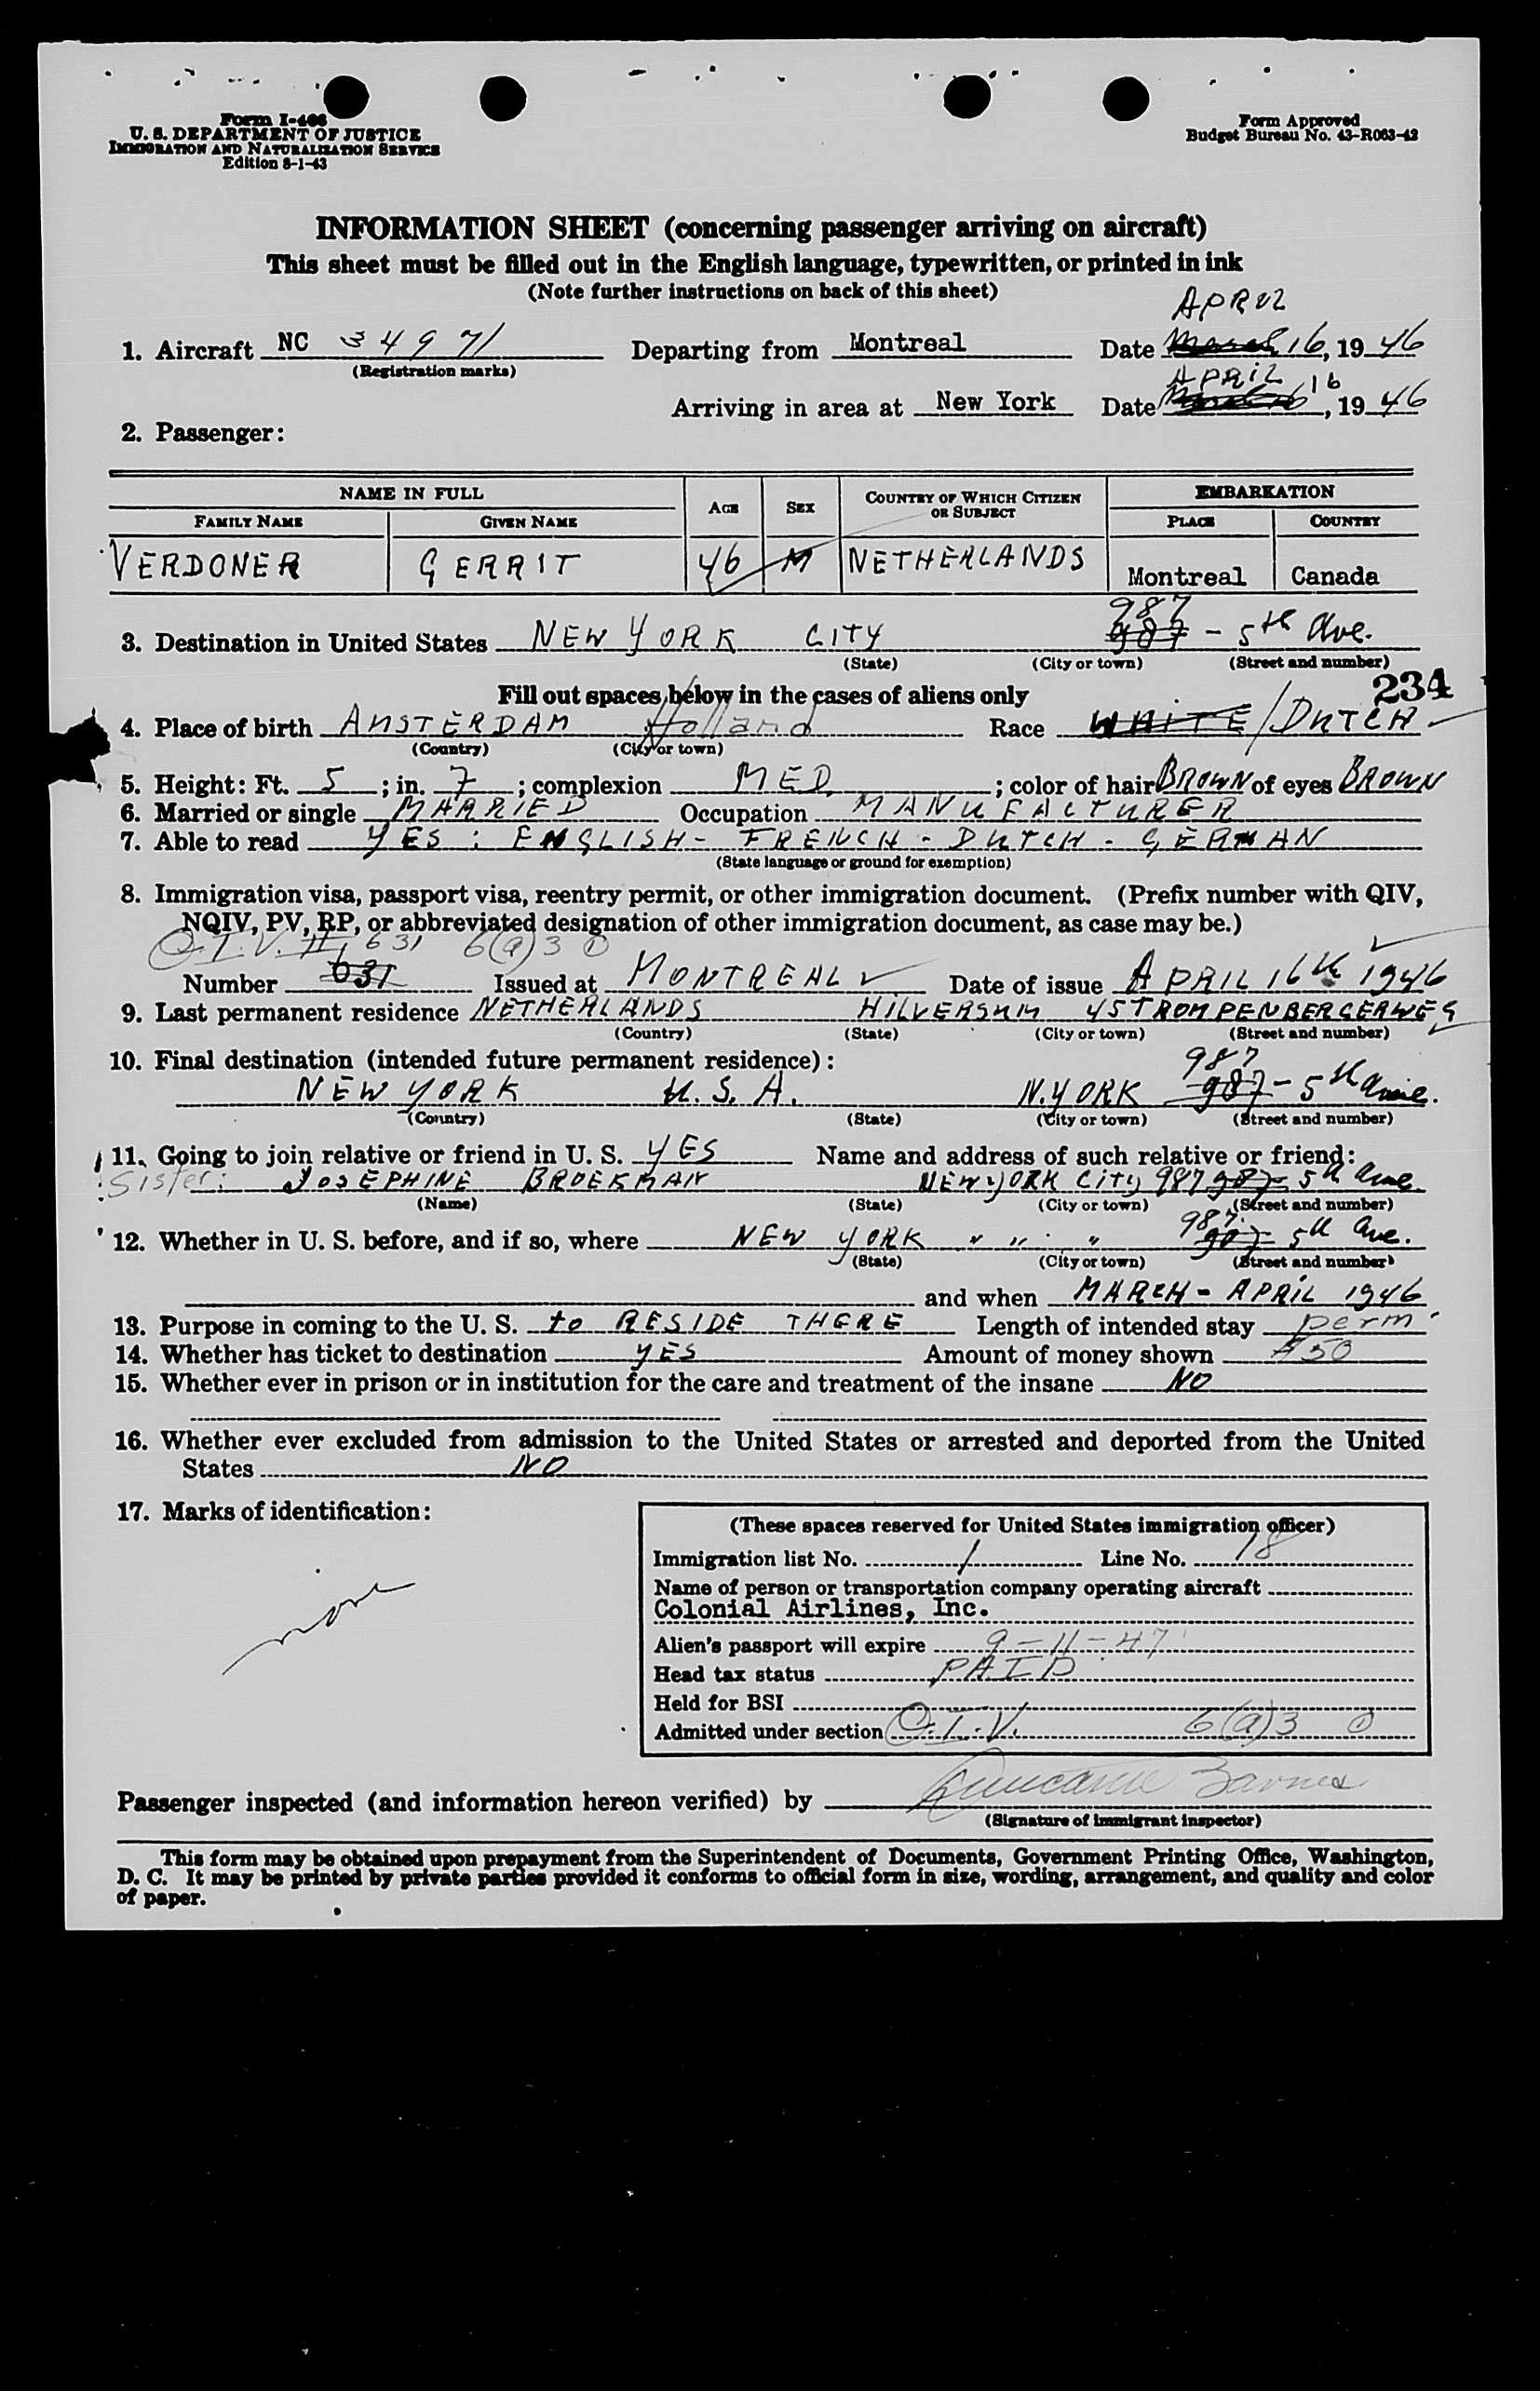 Form I-466
U. S. DEPARTMENT OF JUSTICE
IMMIGRATION AND NATURALIZATION SERVICE
Edition 8-1-43
Form Approved
Budget Bureau No. 43-R063-42
INFORMATION SHEET (concerning passenger arriving on aircraft)
This sheet must be filled out in the English language, typewritten, or printed in ink
(Note further instructions on back of this sheet)
APRIL
1. Aircraft NC 34971 Departing from Montreal Date March 16, 1946
(Registration marks)
APRIL 16
Arriving in area at New York Date , 1946
2. Passenger:
NAME IN FULL
AGE SEX COUNTRY OF WHICH CITIZEN OR SUBJECT EMBARKATION
FAMILY NAME GIVEN NAME PLACE COUNTRY
VERDONER GERRIT 46 M NETHERLANDS Montreal Canada
987
3. Destination in United States NEW YORK CITY 987 - 5th Ave.
(State) (City or town) (Street and number)
Fill out spaces below in the cases of aliens only 234
4. Place of birth AMSTERDAM Holland Race WHITE / DUTCH
(Country) (City or town)
5. Height: Ft. 5; in. 7; complexion MED.; color of hair BROWN of eyes BROWN
6. Married or single MARRIED Occupation MANUFACTURER
7. Able to read YES : ENGLISH - FRENCH - DUTCH - GERMAN
(State language or ground for exemption)
8. Immigration visa, passport visa, reentry permit, or other immigration document. (Prefix number with QIV,
NQIV, PV, RP, or abbreviated designation of other immigration document, as case may be.)
Q.I.V. # 631 6(a)3
Number 631 Issued at MONTREAL Date of issue APRIL 16th 1946
9. Last permanent residence NETHERLANDS HILVERSUM 45 TROMPENBERGERWEG
(Country) (State) (City or town) (Street and number)
10. Final destination (intended future permanent residence):
987
NEW YORK U.S.A. N.YORK 987 - 5th Ave.
(Country) (State) (City or town) (Street and number)
11. Going to join relative or friend in U. S. YES Name and address of such relative or friend:
Sister: JOSEPHINE BROEKMAN NEW YORK CITY 987 987 5th Ave.
(Name) (State) (City or town) (Street and number)
987
12. Whether in U. S. before, and if so, where NEW YORK " " " 987 5th Ave.
(State) (City or town) (Street and number)
and when MARCH - APRIL 1946
13. Purpose in coming to the U. S. to RESIDE THERE Length of intended stay perm
14. Whether has ticket to destination YES Amount of money shown $50
15. Whether ever in prison or in institution for the care and treatment of the insane NO
16. Whether ever excluded from admission to the United States or arrested and deported from the United
States NO
17. Marks of identification:
none
(These spaces reserved for United States immigration officer)
Immigration list No. 1 Line No. 18
Name of person or transportation company operating aircraft
Colonial Airlines, Inc.
Alien's passport will expire 9-11-47
Head tax status PAID
Held for BSI
Admitted under section Q.I.V. 6(a)3
Passenger inspected (and information hereon verified) by Barnes
(Signature of immigrant inspector)
This form may be obtained upon prepayment from the Superintendent of Documents, Government Printing Office, Washington,
D. C. It may be printed by private parties provided it conforms to official form in size, wording, arrangement, and quality and color
of paper.